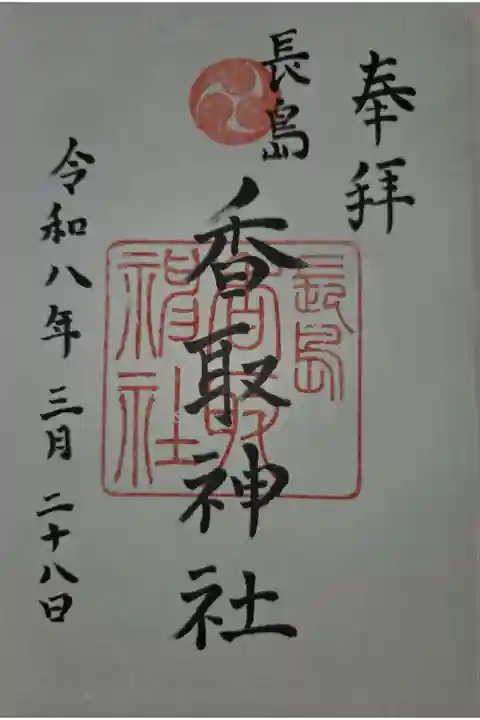 奉拝
長島
香取神社
長島
香取
神社
令和八年 三月 二十八日